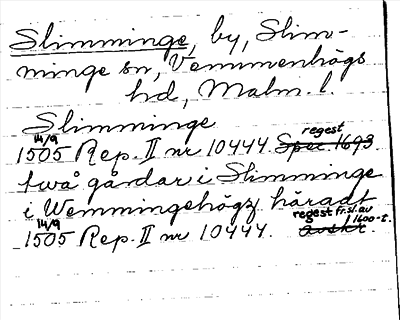 Slimminge, by, Slim-
minge sn, Vemmenhögs
hd, Malm. l.
Slimminge
14/9 1505 Rep. II nr 10444. Spec. 1693 regest
två gårdar i Slimminge
i Wemmingehögz häradt
14/9 1505 Rep. II nr 10444. avskr. regest fr. sl. av 1600-t.